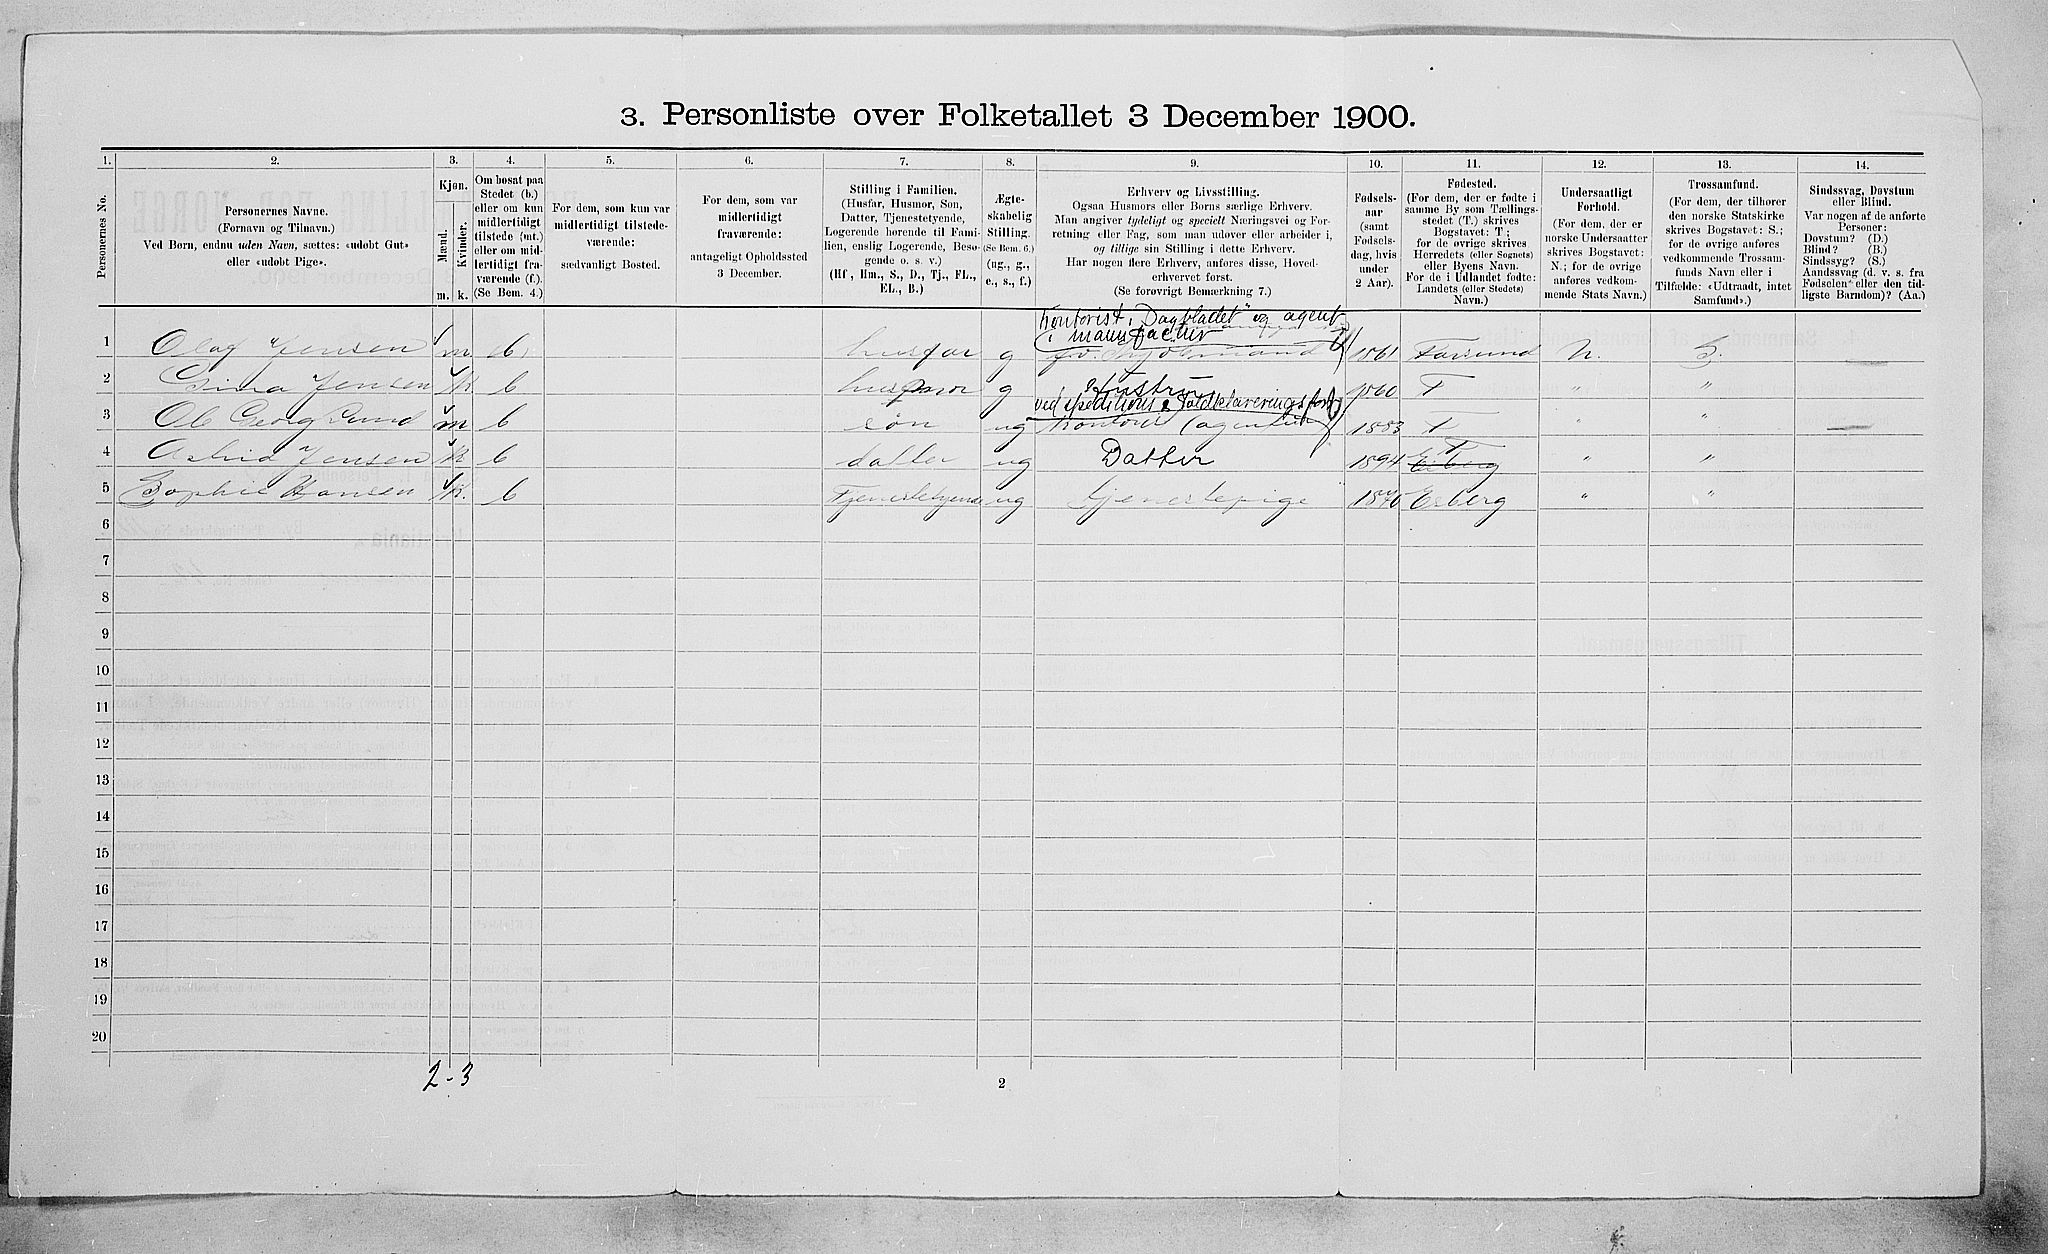 3. Personliste over Folketallet 3 December 1900.
1. 2. 3. 4. 5. 6. 7. 8. 9. 10. 11. 12. 13. 14.
Personernes No.
Personernes Navne.
(Fornavn og Tilnavn.)
Ved Børn, endnu uden Navn, sættes: «udøbt Gut»
eller «udøbt Pige».
Kjøn.
Mænd. Kvinder.
m. k.
Om bosat paa
Stedet (b.)
eller om kun
midlertidigt
tilstede (mt.)
eller om mid-
lertidigt fra-
værende (f.).
(Se Bem. 4.)
For dem, som kun var
midlertidigt tilstede-
værende:
sædvanligt Bosted.
For dem, som var
midlertidigt
fraværende:
antageligt Opholdssted
3 December.
Stilling i Familien.
(Husfar, Husmor, Søn,
Datter, Tjenestetyende,
Logerende hørende til Fami-
lien, enslig Logerende, Besø-
gende o. s. v.)
(Hf, Hm., S., D., Tj., FL.,
EL., B.)
Ægte-
skabelig
Stilling.
(Se Bem. 6.)
(ug., g.,
e., s., f.)
Erhverv og Livsstilling.
Ogsaa Husmors eller Børns særlige Erhverv.
Man angiver tydeligt og specielt Næringsvei og For-
retning eller Fag, som man udøver eller arbeider i,
og tillige sin Stilling i dette Erhverv.
Har nogen flere Erhverv, anføres disse, Hoved-
erhvervet først.
(Se forøvrigt Bemærkning 7.)
Fødsels-
aar
(samt
Fødsels-
dag, hvis
under
2 Aar).
Fødested.
(For dem, der er fødte i
samme By som Tællings-
stedet (T.) skrives
Bogstavet: T;
for de øvrige skrives
Herredets (eller Sognets)
eller Byens Navn.
For de i Udlandet fødte:
Landets (eller Stedets)
Navn.)
Undersaatligt
Forhold.
(For dem, der er
norske Undersaatter
skrives Bogstavet:
N.; for de øvrige
anføres vedkom-
mende Stats Navn.)
Trossamfund.
(For dem, der tilhører
den norske Statskirke
skrives Bogstavet: S.;
for de øvrige anføres
vedkommende Trossam-
funds Navn eller i
Tilfælde: «Udtraadt, intet
Samfund».)
Sindssvag, Døvstum
eller Blind.
Var nogen af de anførte
Personer:
Døvstum? (D.)
Blind? (B.)
Sindssyg? (S.)
Aandssvag (d. v. s. fra
Fødselen eller den tid-
ligste Barndom)? (Aa.)
Kontorist i "Dagbladet" og agent
i manufactur
1 Olaf Jensen m b husfar g 1861 Farsund N. S.
2 Jensen k b husmor g Hustru 1860 T " "
ved speditions &
3 Ole Georg Lund m b søn ug Kontorist (agentur) 1883 T " "
4 Astrid Jensen k b datter ug Datter 1894 T " "
5 Sophie Hansen k. b Tjenestetyende ug tjenestepige 1875 Esberg " "
6
7
8
9
10
11
12
13
14
15
16
17
18
19
20
2-3
2